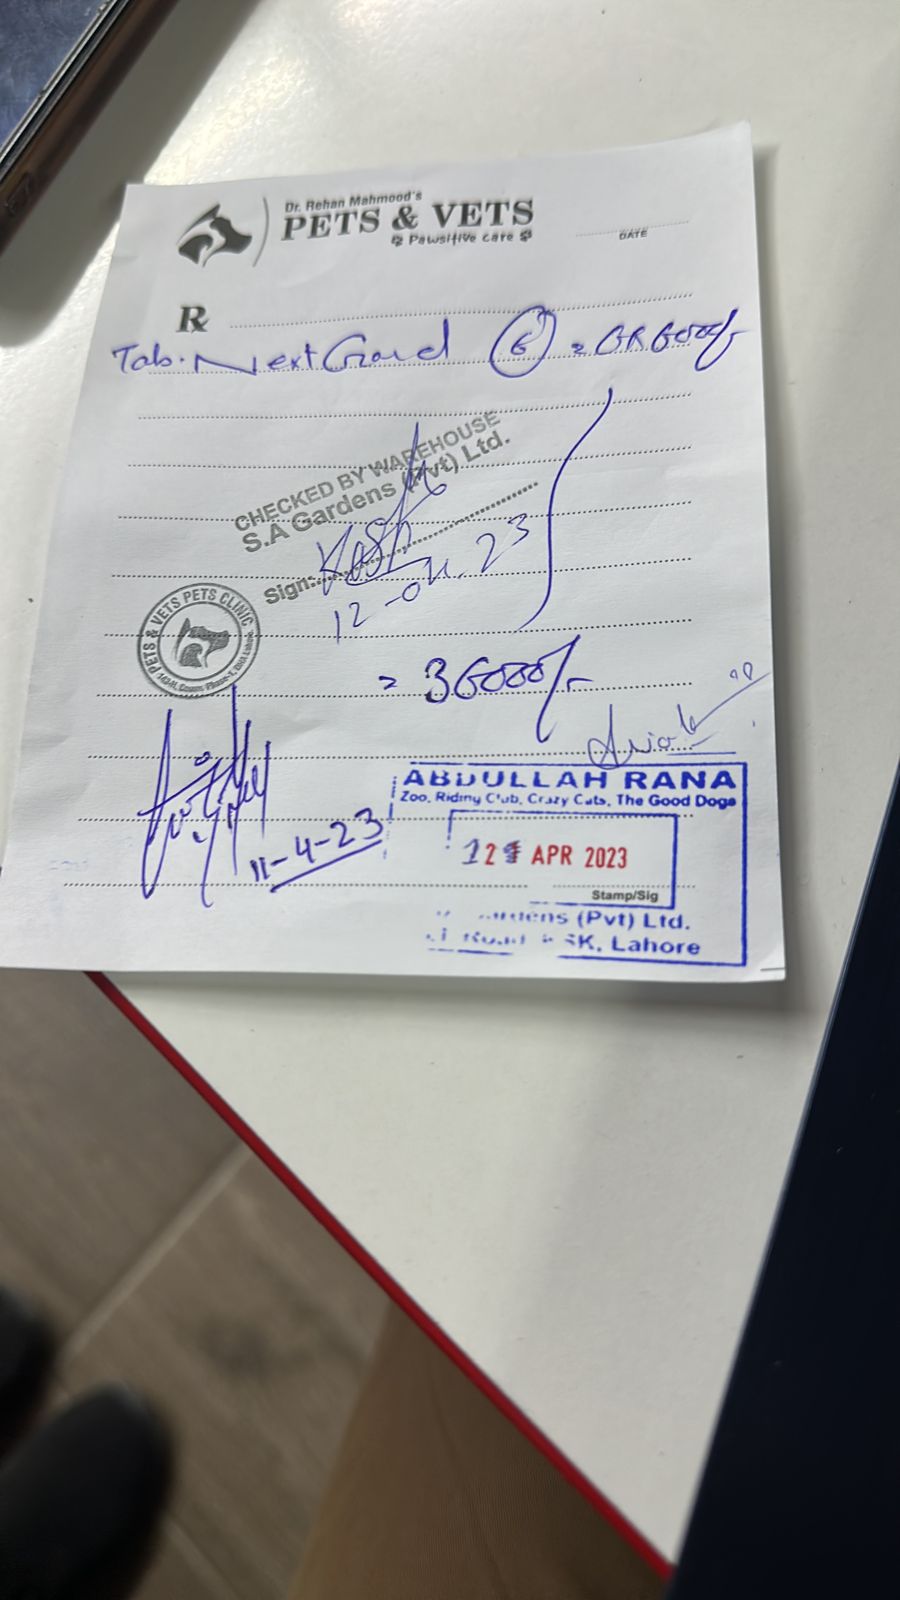 Dr. Rehan Mahmood's
PETS & VETS
Pawsitive care
DATE
Rx
Tab. NextGard (6) = 6x6000/-
CHECKED BY WAREHOUSE
S.A Gardens (Pvt) Ltd.
Sign:
12-04-23
PETS & VETS PETS CLINIC
= 36000/-
11-4-23
ABDULLAH RANA
Zoo, Riding Club, Crazy Cats, The Good Dogs
12 APR 2023
Stamp/Sig
Gardens (Pvt) Ltd.
SK, Lahore